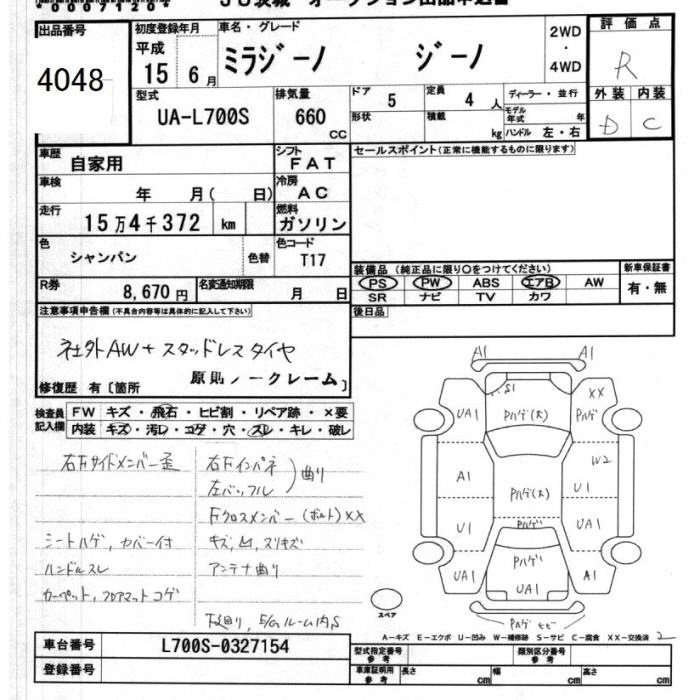 00071200
JU茨城 オークション出品申込書
出品番号
4048
初度登録年月
平成 15 6月
車名・グレード
ミラジーノ ジーノ
2WD
・
4WD
評価点
R
型式
UA-L700S
排気量
660 CC
ドア 5
定員 4 人
ディーラー・並行
形状
積載 kg
モデル年式 年
ハンドル 左・右
外装 内装
D C
車歴 自家用
シフト FAT
セールスポイント(正常に機能するものに限ります)
車検 年 月( 日)
冷房 AC
走行 15万4千372 km
燃料 ガソリン
色 シャンパン 色替
色コード T17
装備品 (純正品に限り○をつけてください)
新車保証書
PS PW ABS エアB AW
有・無
SR ナビ TV カワ
R券 8,670円
名変通知期限 月 日
後日品
注意事項申告欄(不具合内容等は具体的に記入して下さい)
社外AW+スタッドレスタイヤ
原則ノークレーム
修復歴 有[箇所 ]
検査員記入欄
FW キズ・飛石・ヒビ割・リペア跡・×要
内装 キズ・汚レ・コゲ・穴・スレ・キレ・破レ
右Fサイドメンバー歪
右Fインパネ
左バッフル
曲り
Fクロスメンバー(ボルト)XX
シートハゲ,カバー付
キズ,凹,スリキズ
ハンドルスレ
アンテナ曲り
カーペット,フロアマットコゲ
下廻り,E/Gルーム内S
A1 A1
S1
XX
UA1 Pハゲ(大) Pハゲ
W2
A1 Pハゲ(大) U1
U1 Pハゲ UA1
Pハゲ
UA1 UA1 A1
スペア
Pハゲ ヒビ
A-キズ E-エクボ U-凹み W-補修跡 S-サビ C-腐食 XX-交換済 2
車台番号 L700S-0327154
登録番号
型式指定番号 参考
類別区分番号 参考
車庫証明用 参考
長さ cm
幅 cm
高さ cm